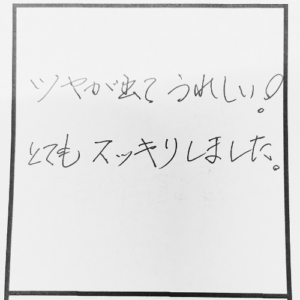 ツヤが出てうれしい!
とてもスッキリしました。